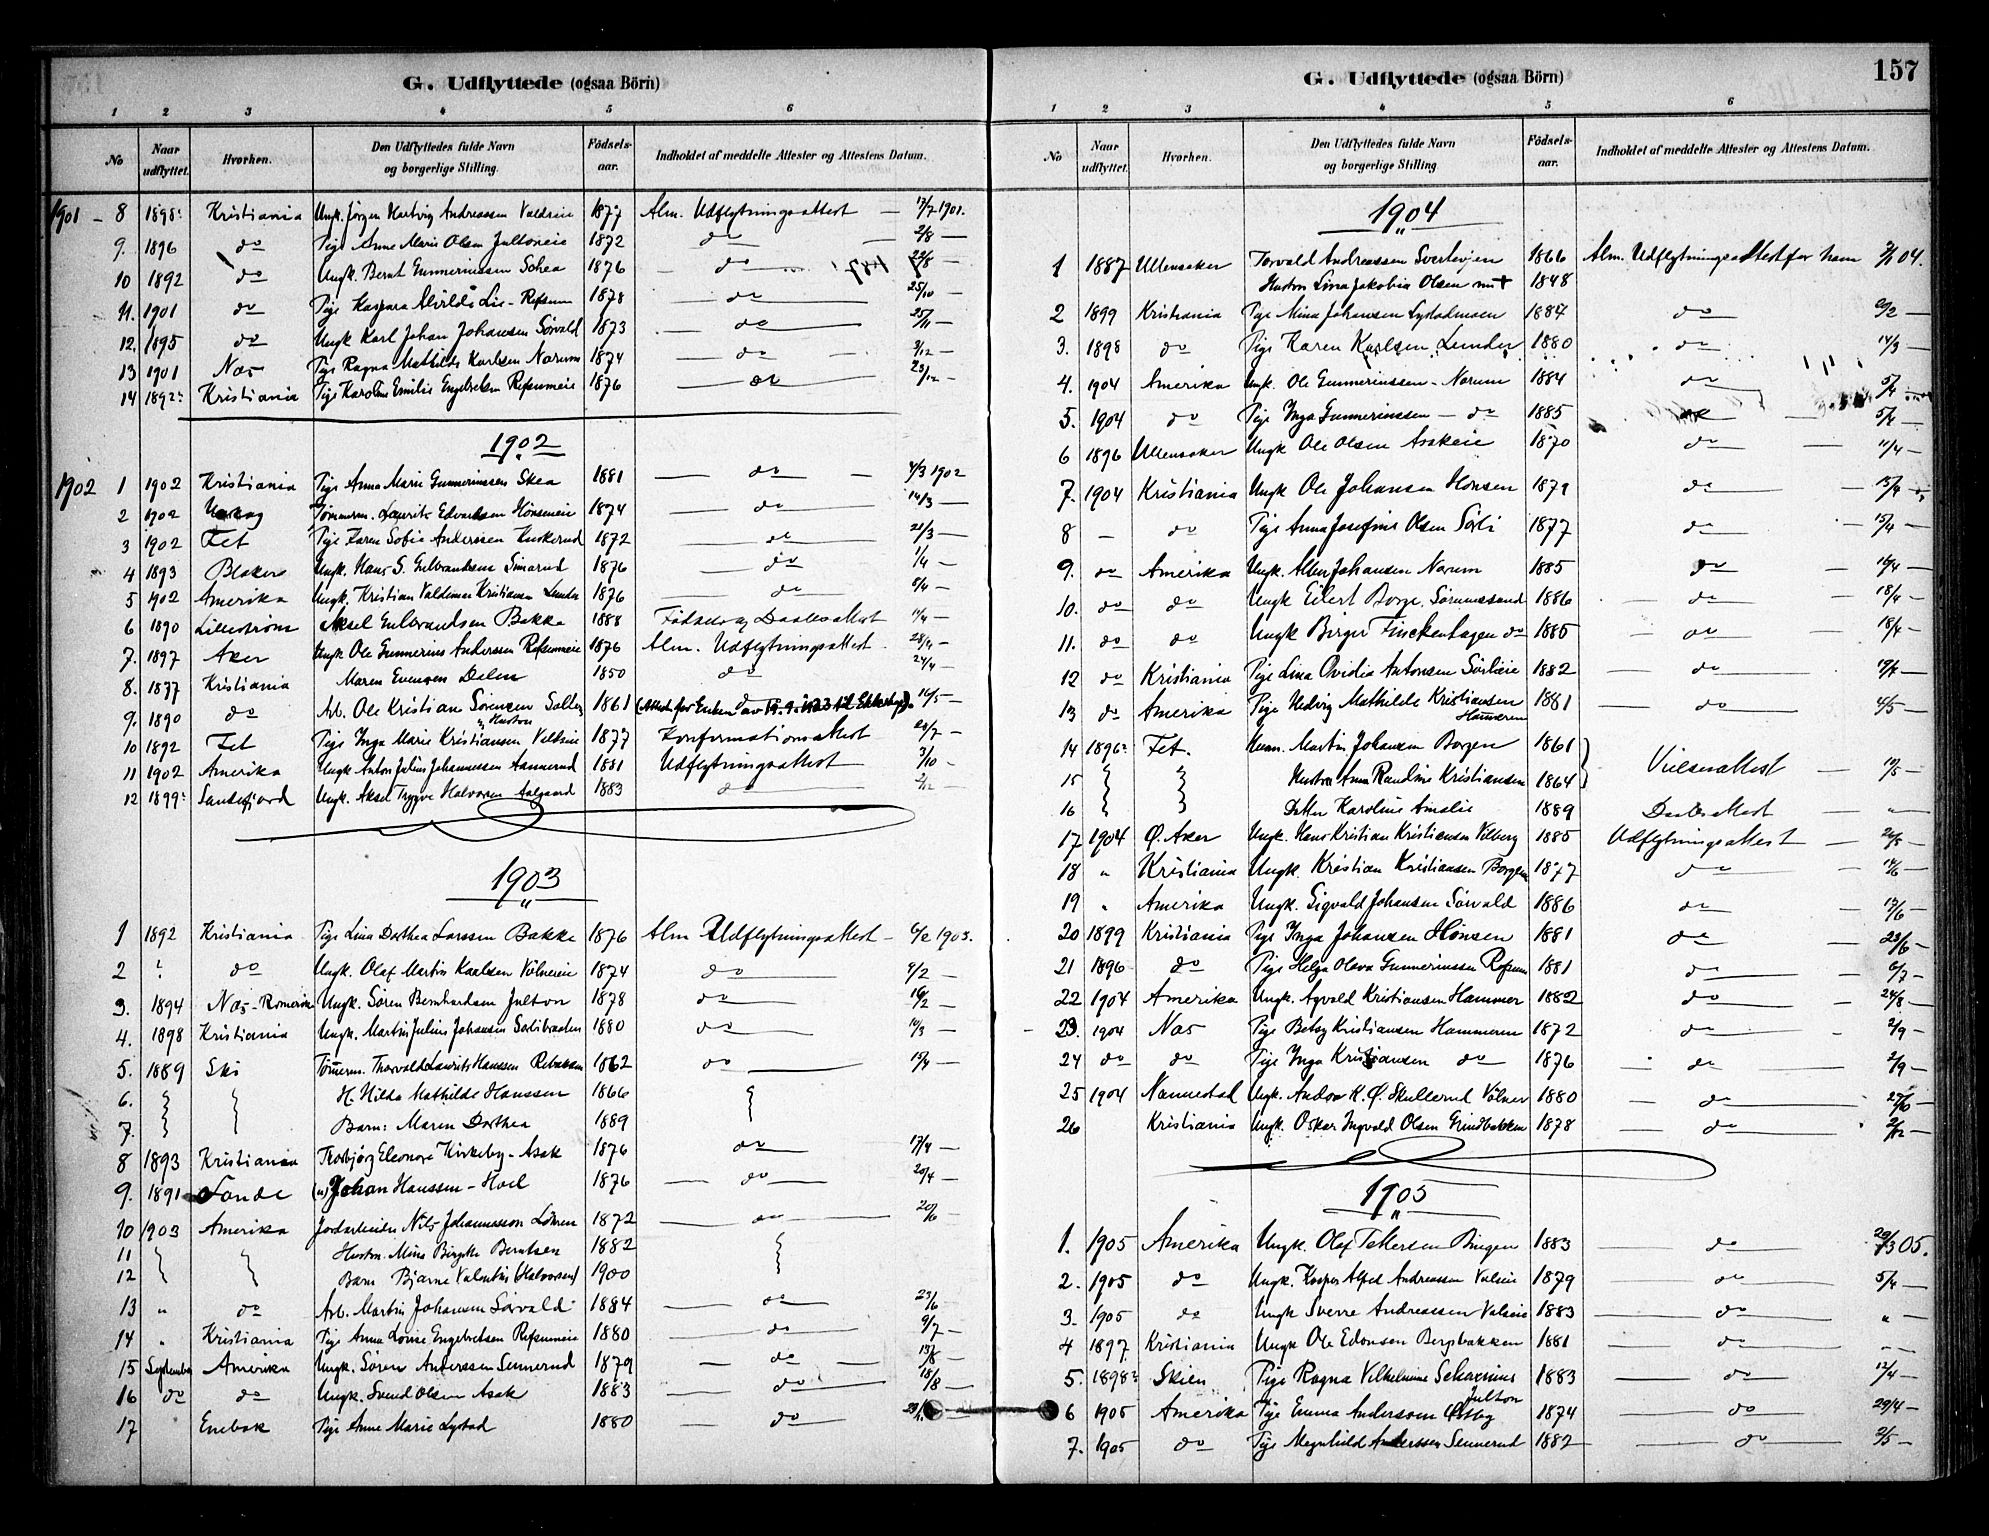 G. Udflyttede (ogsaa Börn)
1 2 3 4 5 6
No Naar udflyttet. Hvorhen. Den Udflyttedes fulde Navn og borgerlige Stilling. Födsels-aar. Indholdet af meddelte Attester og Attestens Datum.
1901 – 8 1898 Kristiania Ungk. Jørgen Hartvig Andreassen Valdreie 1877 Alm. Udflytningsattest — 17/7 1901.
9. 1896 do Pige Anne Marie Olsen Jultoneie 1872 do — 2/8 —
10 1892 do Ungk. Bernt Gunneriussen 1876 — do
11. 1901 do Pige Kaspara Alvilde Lie - Refsum 1878 do 25/10 —
12. 1895 do Ungk Karl Johan Johansen Sørvald 1873 do 25/11 —
13 1901 Næs Pige Ragna Mathilde Karlsen Narum 1874 do 3/12 —
14 1892 Kristiania Pige Karoline Emilie Engebretsen Refsumeie 1876 do 23/12 —
1902
1902 1 1902 Kristiania Pige Anna Marie Gunneriussen Skea 1881 do 4/3 1902
2 1902 Tømmerm. Laurits Edvardsen Hönseneie 1874 do 14/3 —
3 1902 Fet Pige Karen Sofie Anderssen Huskerud 1872 do 21/3 —
4 1893 Blaker Ungk. Hans S. Gulbrandsen Simarud 1876 do 1/4 —
5 1902 Amerika Ungk. Kristian Valdemar Kristiansen Lunder 1876 do 5/4 —
6 1890 Lillestrøm Aksel Gulbrandsen Bakke 1888 Fødsels og Daabsattest 11/4 —
7. 1897 Aker Ungk Ole Gunnerius Anderssen Refsumeie 1876 Alm. Udflytningsattest. 28/4 —
8. 1877 Kristiania Maren Evensen Dalen 1850 do 24/4 —
9. 1890 do Arb. Ole Kristian Sørensen 1861 (Attest for Enken av) 16/5 —
" Hustru
10 1892 Fet Pige Inga Marie Kristiansen 1877 Konfirmationsattest 28/7 —
11 1902 Amerika Ungk Anton Julius Johannessen Aamnerud 1881 Udflytningsattest 3/10 –
12 1899 Sandefjord Ungk. Aksel Trygve Halvorsen Aalgaard 1883 do 2/12 —
1903
"
1 1892 Kristiania Pige Lina Dorthea Larssen Bakke 1876 Alm Udflytningsattest – 6/2 1903.
2 ? do Ungk. Olaf Martin Karlsen Völnereie 1874 do 9/2 —
3. 1894 Næs - Romerike Ungk. Søren Bernhardsen Julton 1878 do 16/2 —
4. 1898 Kristiania Ungk. Martin Julius Johansen Sørlibraaten 1880 do 14/3 —
5. 1889 Ski Tømerm. Thorvald Laurits Hanssen 1862 do 15/4 —
6. H. Hilda Mathilde Hanssen 1866
7. Barn: Maren Dorthea 1889
8 1893 Kristiania Thorbjørg Eleonore Kirkeby - Asak 1876 do 17/4 —
9. 1891 Sande (u) Johan Hanssen - Hoel 1876 do 20/4 —
10 1903 Amerika Jordarbeider Nils Johannesson Löknen 1872 do 20/6 —
11 Hustru. Mina Birgitte Berntsen 1882
12 Barn Bjarne Valentin (Halvorsen) 1900
13 " do Arb. Martin Johansen Sørvald 1884 do 23/6 —
14 " Kristiania Pige Anna Lovise Engebretsen Refsumeie 1880 do 9/7 —
15 September Amerika Ungk. Søren Anderssen Sennerud 1879 do 13/8 —
16 do do Ungk. Svend Olsen Asak 1883 do 18/8 —
17 Enebak Pige Anne Marie Lystad 1880 do
G. Udflyttede (ogsaa Börn) 157
1 2 3 4 5 6
No Naar udflyttet. Hvorhen. Den Udflyttedes fulde Navn og borgerlige Stilling Födsels-aar. Indholdet af meddelte Attester og Attestens Datum.
1904
"
1 1887 Ullensaker Torvald Andreassen 1866 Alm. Udflytningsattest for ham 04.
Hustru Lina Jakobia Olsen 1848
2 1899 Kristiania Pige Mina Johansen Lystadmoen 1884 do 29/2 —
3. 1898 do Pige Karen Karlsen Lunder 1880 do 14/3 —
4. 1904 Amerika Ungk. Ole Gunneriussen - Narum 1884 do 5/4 —
5. 1904 do Pige Inga Gunneriussen — do 1885 do 5/4 —
6 1896 Ullensaker Ungk Ole Olsen Asakeie 1870 do — 11/4 —
7. 1904 Kristiania Ungk Ole Johansen Hönsen 1879 do — 15/4
8 – do Pige Anna Josefine Olsen Sørli 1877 do 15/4 —
9. do Amerika Ungk. Albin Johansen Narum 1885 do — 16/4 —
10. do do Ungk Eilert Borge. Sørumsand 1886 do 18/4 —
11. do do Ungk Birger Finckenhagen do 1885 do 18/4 —
12 do Kristiania Pige Lina Ovidia Antonsen Sørlieie 1882 do 19/4 —
13 do Amerika Pige Hedvig Mathilde Kristiansen 1881 do 4/5 —
Hammeren
14 1896 Fet. Martin Johansen Borgen 1861
15 Hustru Anna Randine Kristiansen 1864 } Vielsesattest — 10/5 —
16 Datter Karoline Amalie 1889 Daabsattest — " —
17 1904 Ø. Aker Ungk. Hans Kristian Kristiansen Vilberg 1885 Udflytningsattest — 26/5 —
18 " Kristiania Ungk. Kristian Kristiansen Borgen 1877 do 14/6 —
19 " Amerika Ungk. Sigvald Johansen Sørvald 1886 do 17/6 —
20 1899 Kristiania Pige Inga Johansen Hönsen 1881 do 23/6 —
21 1896 do Pige Helga Olava Gunneriussen Refsum 1881 do 6/7 —
22 1904 Amerika Ungk. Agvald Kristiansen Hammer 1882 do 24/8 —
23. 1904 Næs Pige Betsy Kristiansen Hammeren 1872 do 2/9 —
24 do do Pige Inga Kristiansen do 1876 do 2/9 —
25 1904 Nannestad Ungk. Andor K. Ø. Skullerud Völner 1880 do 27/10 —
26 Kristiania Ungk. Oskar Ingvald Olsen Grindbakken 1878 do 2/12 —
1905
"
1. 1905 Amerika Ungk. Olaf Pettersen Bingen 1883 do 29/3 05.
2. 1905 do Ungk. Kasper Alfred Andreassen Valseie 1879 do 5/4 —
3. 1905 do Ungk Sverre Andreassen Valseie 1883 do " —
4 1897. Kristiania Ungk Ole Edvinsen Bergsbakken 1881 do " —
5. 1898 Skien Pige Ragna Vilhelmine 1883 do 12/4 —
6 1905 Amerika Pige Emma Anderssen Østby 1874 do 29/4 —
Julton
7. 1905 do Pige Magnhild Anderssen Sennerud 1882 do 2/5 —